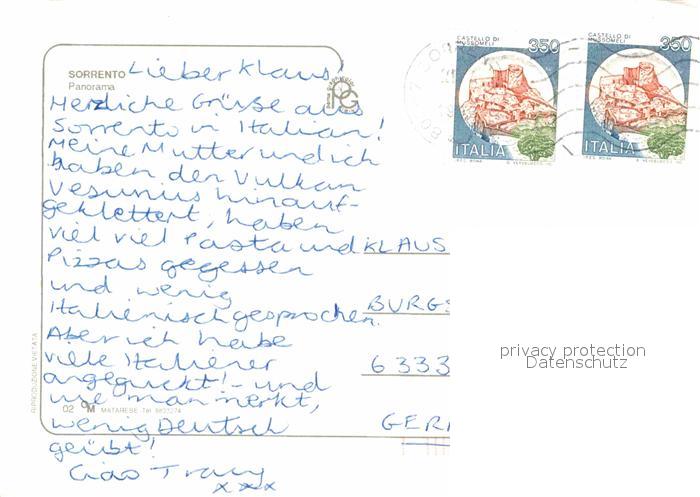 SORRENTO
Panorama
Lieber Klaus!
Herzliche Grüsse aus
Sorrento in Italian!
Meine Mutter und ich
haben den Vulkan
Vesunius hinauf-
geklettert, haben
viel viel Pasta und
Pizzas gegessen
und wenig
Italienisch gesprochen.
Aber ich habe
viele Italiener
angeguckt! - und
wie man merkt,
wenig Deutsch
geübt!
Ciao Tracy
x x x
CASTELLO DI
MUSSOMELI
350
ITALIA
CASTELLO DI
MUSSOMELI
350
ITALIA
KLAUS
BURGS
6333
GER
privacy protection
Datenschutz
RIPRODUZIONE VIETATA
02
MATARESE - Tel.